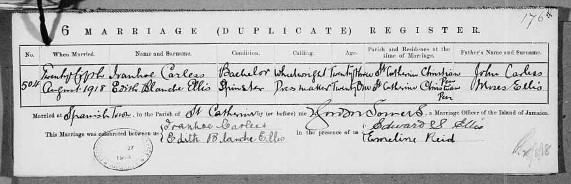 176
6 MARRIAGE (DUPLICATE) REGISTER.
No. When Married. Name and Surname. Condition. Calling. Age. Parish and Residence at the time of Marriage. Father's Name and Surname.
504 Twenty fifth Ivanhoe Carless Bachelor Wheelwright Twenty Three St Catherine Christian Pen John Carless
August 1918 Edith Blanche Ellis Spinster Dressmaker Twenty One St Catherine Christian Pen Moses Ellis
Married at Spanish Town, in the Parish of St Catherine by (or before) me Gordon Somers, a Marriage Officer of the Island of Jamaica.
This Marriage was celebrated between us Ivanhoe Carless in the presence of us Edward S Ellis
Edith Blanche Ellis Emeline Reid